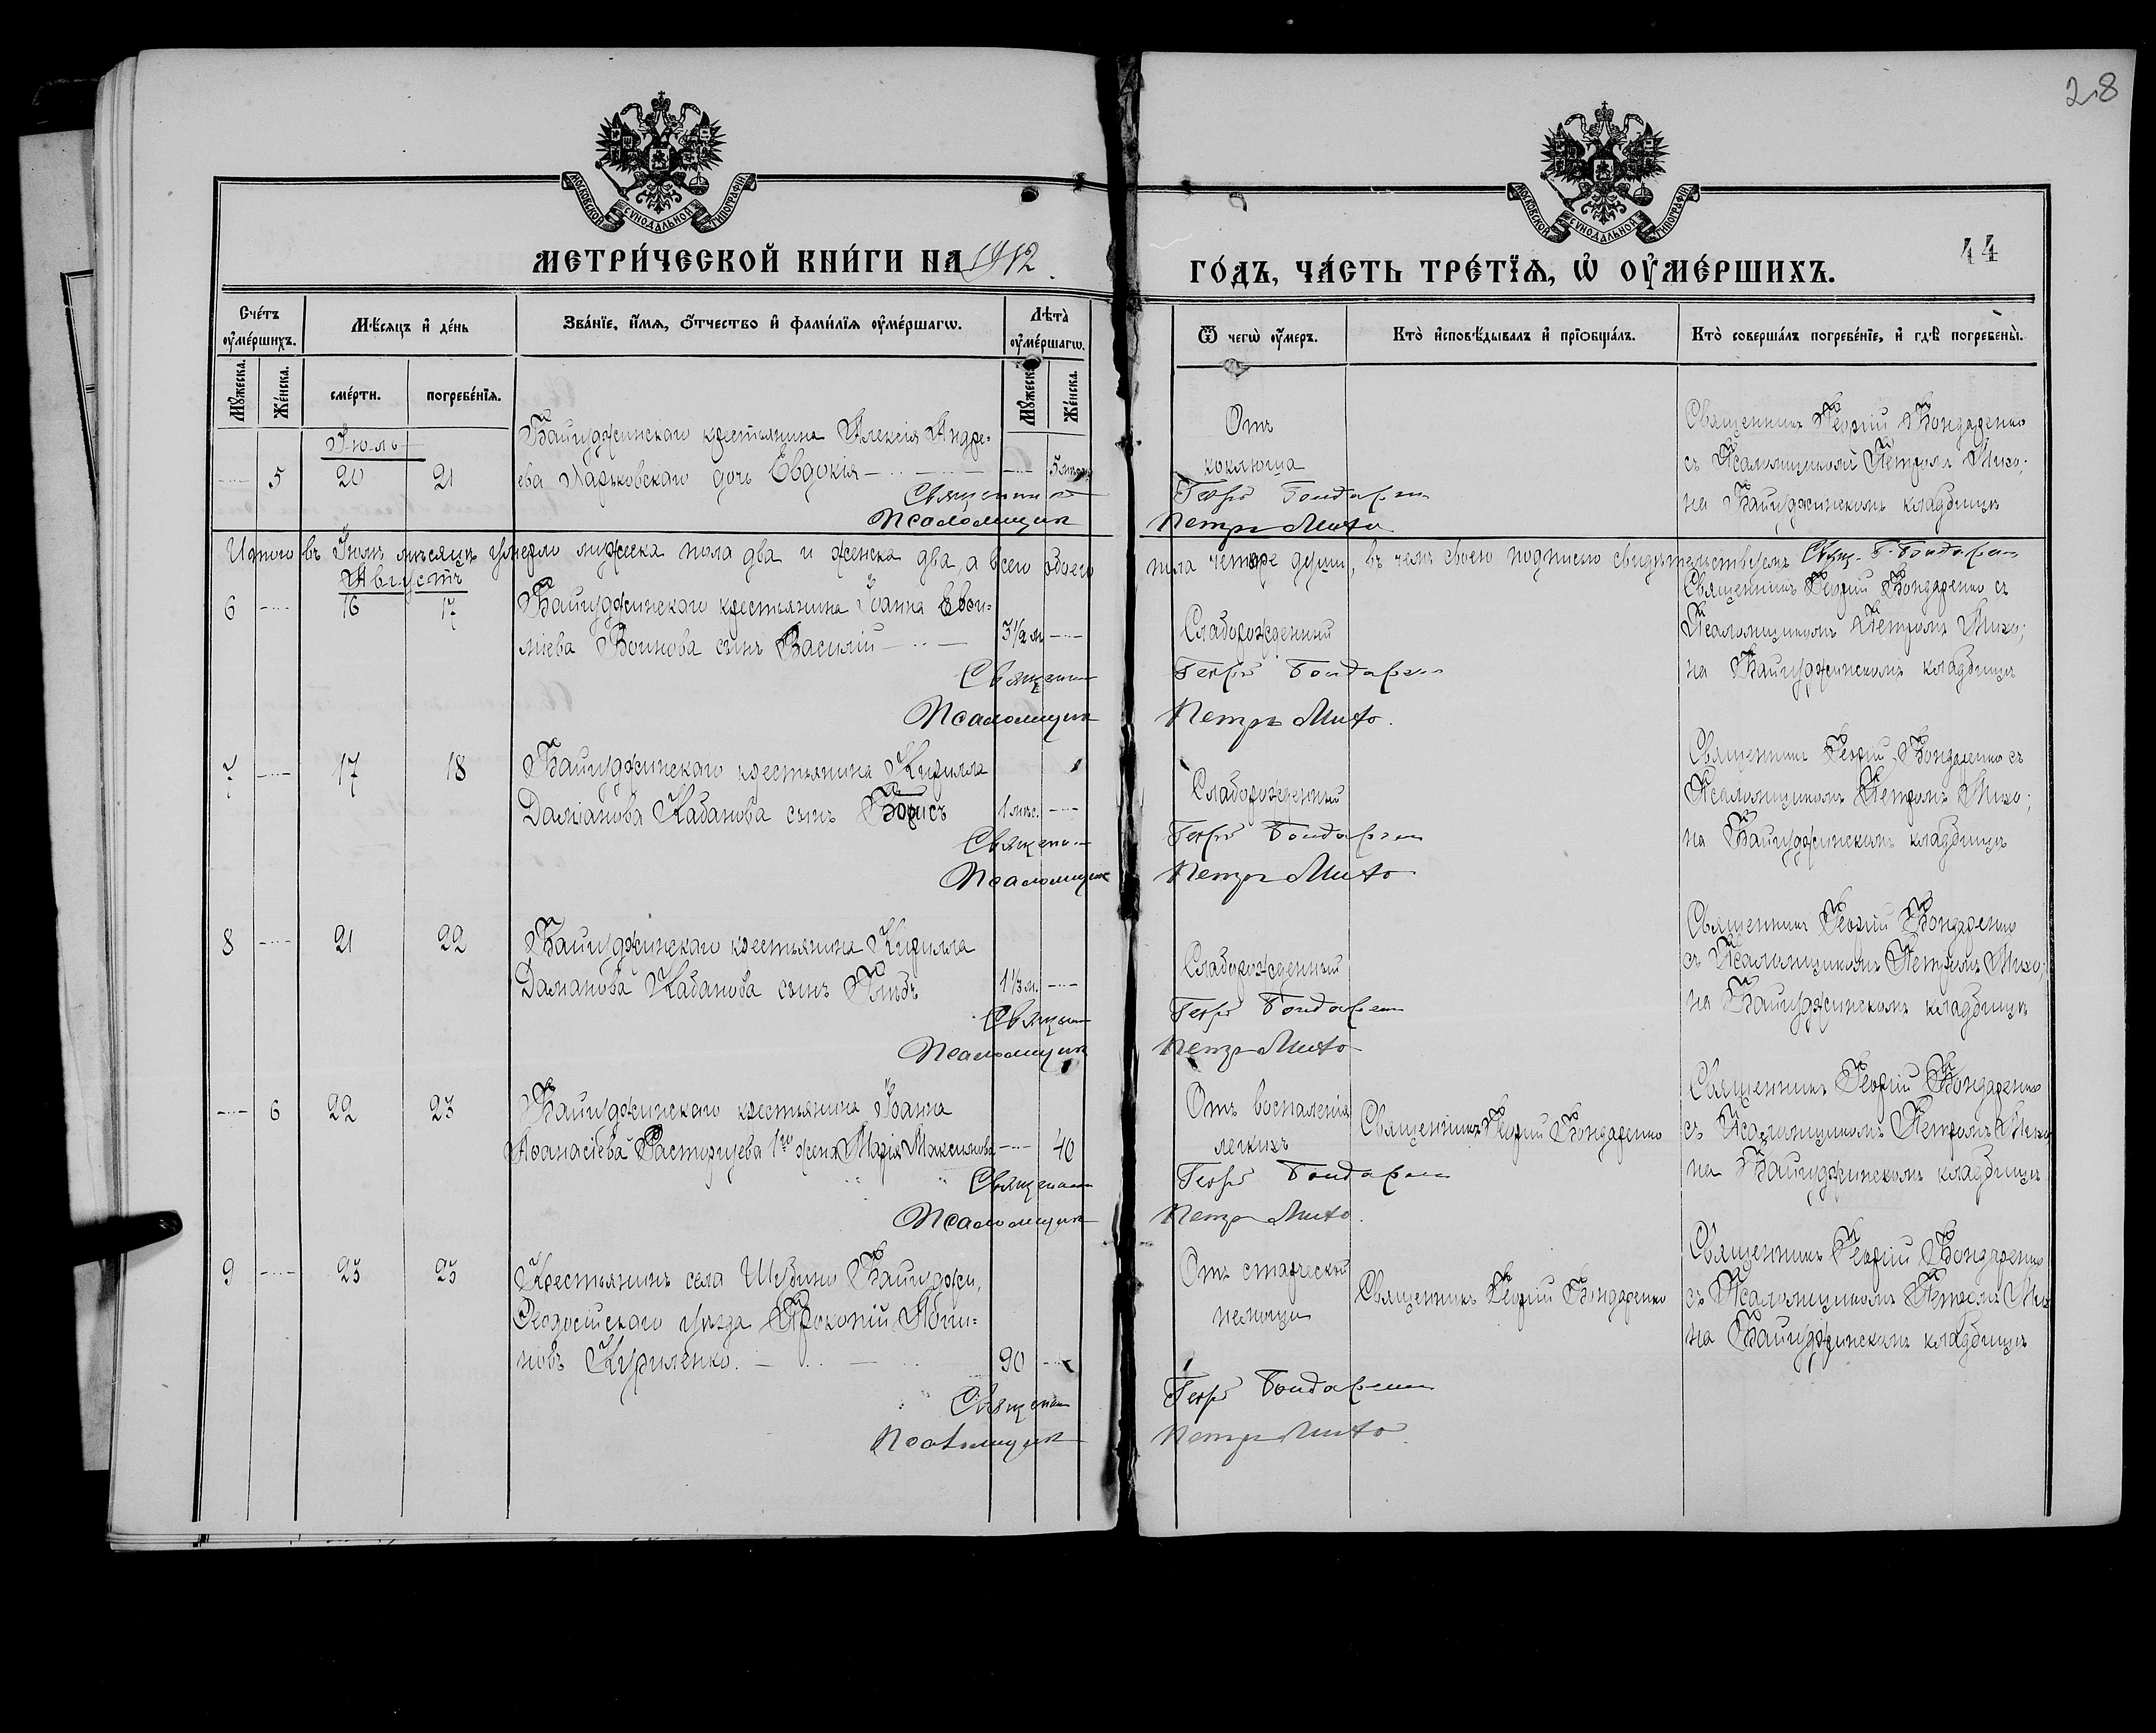 28
МОСКОВСКОЙ СУНОДАЛЬНОЙ ТИПОГРАФІИ
МОСКОВСКОЙ СУНОДАЛЬНОЙ ТИПОГРАФІИ
МЕТРИ́ЧЕСКОЙ КНИ́ГИ НА 1912.
ГО́ДЪ, ЧА́СТЬ ТРЕ́ТЇѦ, Ѡ҆ ОУ҆МЕ́РШИХЪ.
44
Сче́тъ оу҆ме́ршихъ.
Мѣ́сяцъ и҆ де́нь
Зва́нїе, и҆́мѧ, ѻ҆́тчество и҆ фами́лїѧ оу҆ме́ршагѡ.
Лѣ̀та оу҆ме́ршагѡ.
Ѿ чегѡ̀ оу҆́меръ.
Кто̀ и҆сповѣ́дывалъ и҆ прїѡбща́лъ.
Кто̀ соверша́лъ погребе́нїе, и҆ гдѣ̀ погребены̀.
Мꙋ́жеска.
Же́нска.
сме́рти.
погребе́нїѧ.
Мꙋ́жеска.
Же́нска.
Іюль
5 20 21
Байгуджинскаго крестьянина Алексія Андре=
ева Харьковскаго дочь Евдокія
Священник
Псаломщик
Отъ
коклюша
Георгій Бондаренко
Петръ Михо
Священникъ Георгій Бондаренко
съ Псаломщикомъ Петромъ Михо;
на Байгуджинскомъ кладбищѣ
Итого въ Іюлѣ мѣсяцѣ умерло мужеска пола два и женска два, а всего обоего пола четыре души, въ чемъ своею подписью свидѣтельствуемъ Свящ. Г. Бондаренко
Августъ
6 16 17
Байгуджинскаго крестьянина Іоанна Евѳи=
міева Воинова сынъ Василій
3½ м.
Священник
Псаломщик
Слаборожденный
Георгій Бондаренко
Петръ Михо.
Священникъ Георгій Бондаренко съ
Псаломщикомъ Петромъ Михо;
на Байгуджинскомъ кладбищѣ
7 17 18
Байгуджинскаго крестьянина Кирилла
Даміанова Кабанова сынъ Борисъ
1 мѣс.
Священник
Псаломщик
Слаборожденный
Георгій Бондаренко
Петръ Михо
Священникъ Георгій Бондаренко съ
Псаломщикомъ Петромъ Михо;
на Байгуджинскомъ кладбищѣ
8 21 22
Байгуджинскаго крестьянина Кирилла
Даміанова Кабанова сынъ Глѣбъ
1⅓ м.
Священник
Псаломщик
Слаборожденный
Георгій Бондаренко
Петръ Михо
Священникъ Георгій Бондаренко
съ Псаломщикомъ Петромъ Михо;
на Байгуджинскомъ кладбищѣ
6 22 23
Байгуджинскаго крестьянина Іоанна
Аѳанасіева Расторгуева 1го жена Марія Максимова
40
Священник
Псаломщик
Отъ воспаленія
легкихъ
Георгій Бондаренко
Петръ Михо.
Священникъ Георгій Бондаренко
Священникъ Георгій Бондаренко
съ Псаломщикомъ Петромъ Михо
на Байгуджинскомъ кладбищѣ
9 23 25
Крестьянинъ села Шубино Байгуджи,
Ѳеодосійскаго уѣзда Прокопій
Куриленко.
90
Священник
Псаломщик
Отъ старческой
немощи
Георгій Бондаренко
Петръ Михо.
Священникъ Георгій Бондаренко
Священникъ Георгій Бондаренко
съ Псаломщикомъ Петромъ Михо
на Байгуджинскомъ кладбищѣ